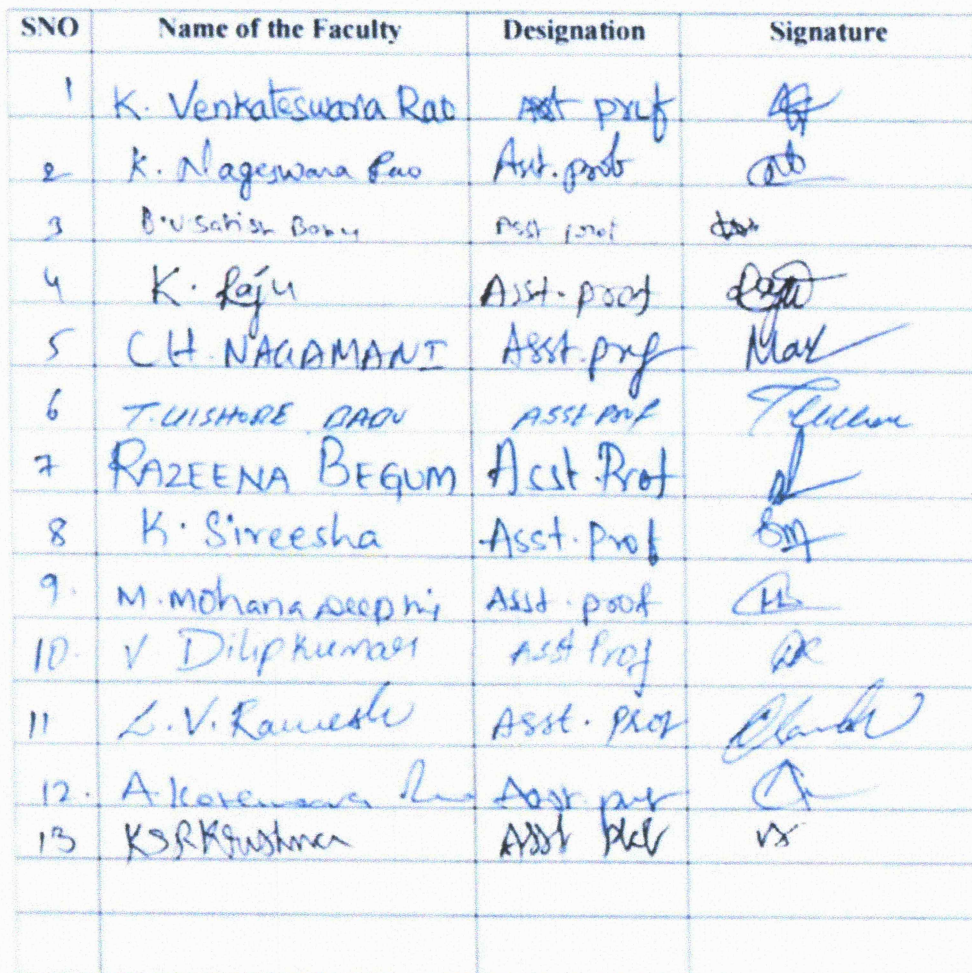 SNO Name of the Faculty Designation Signature
1 K. Venkateswara Rao Asst prof
2 K. Nageswara Rao Asst. prof
3 B.V. Satish Babu Asst prof
4 K. Raju Asst. prof Raju
5 CH. NAGAMANI Asst. prof
6 T. KISHORE BABU ASST PROF
7 RAZEENA BEGUM Asst. Prof
8 K. Sireesha Asst. Prof
9. M. Mohana Deepthi Asst. proof
10. V Dilipkumar Asst Prof
11 L.V. Ramesh Asst. prof
12. A. Koteswara Rao Asst. prof
13 KSRKrishna Asst Prof